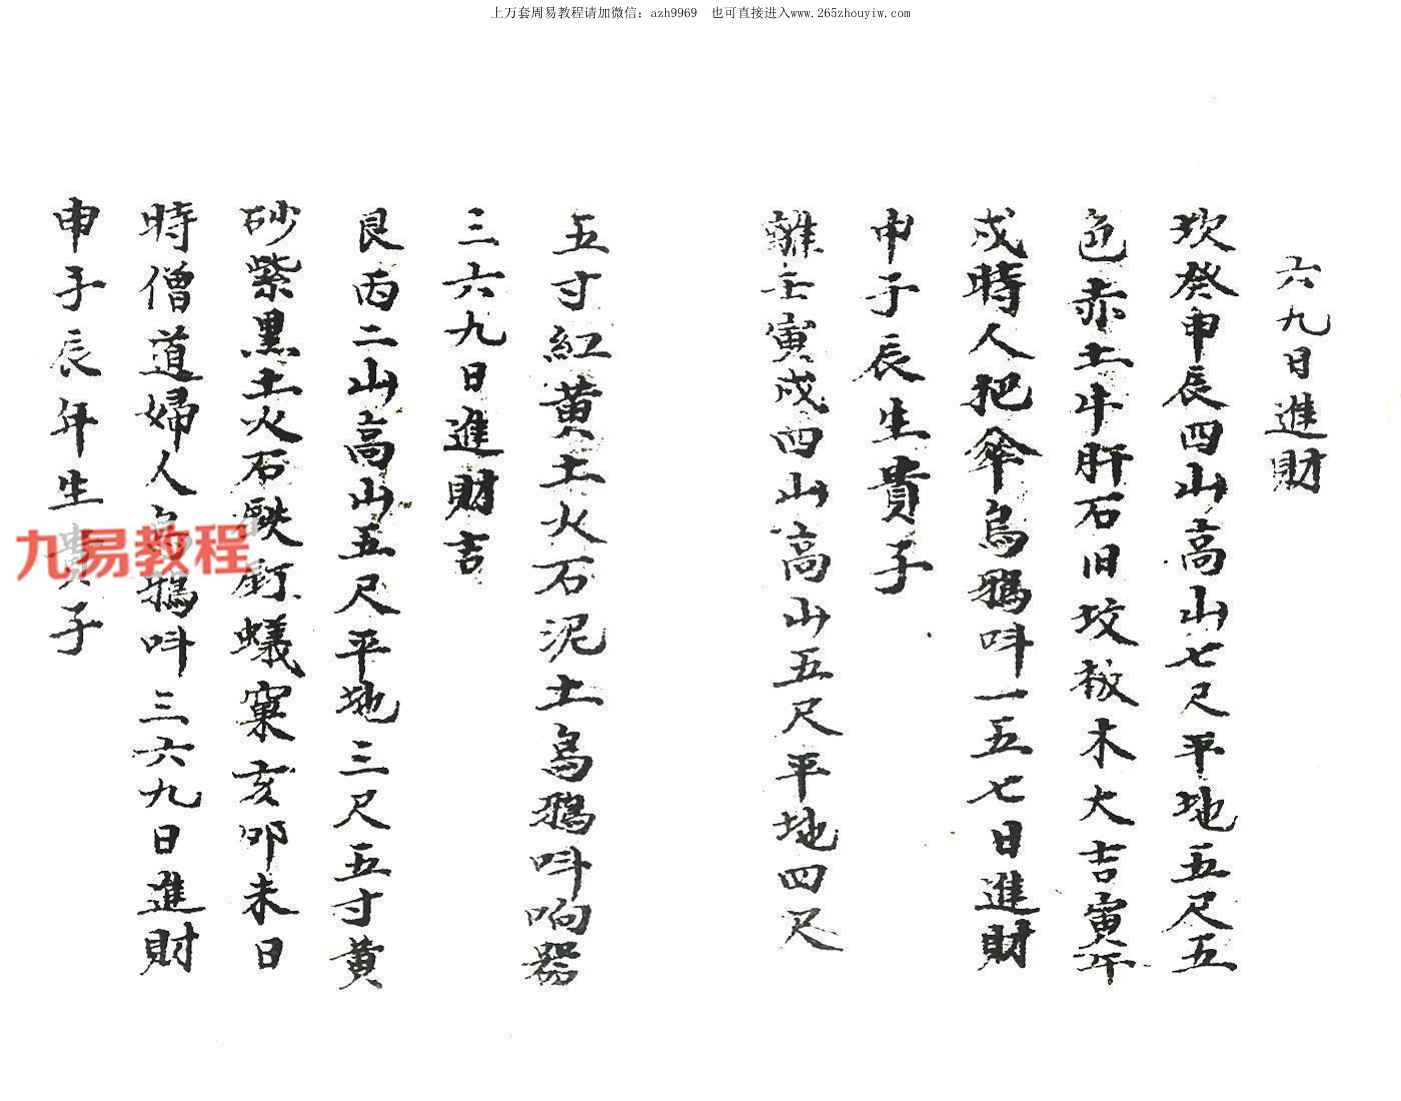 上万套周易教程请加微信: azh9969 也可直接进入www.265zhouyiw.com
六九日進財
坎癸申辰四山高山七尺平地五尺五
色赤土牛肝石旧坟板木大吉寅午
戌時人把傘烏鴉呌一五七日進財
申子辰生貴子
離壬寅戌四山高山五尺平地四尺
五寸紅黄土火石泥土烏鴉呌响器
三六九日進財吉
艮丙二山高山五尺平地三尺五寸黄
砂紫黑土火石釘蟻窠亥卯未日
時僧道婦人烏鴉呌三六九日進財
申子辰年生貴子
九易教程